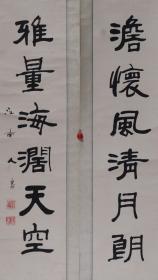 澹懷風清月朗
雅量海濶天空